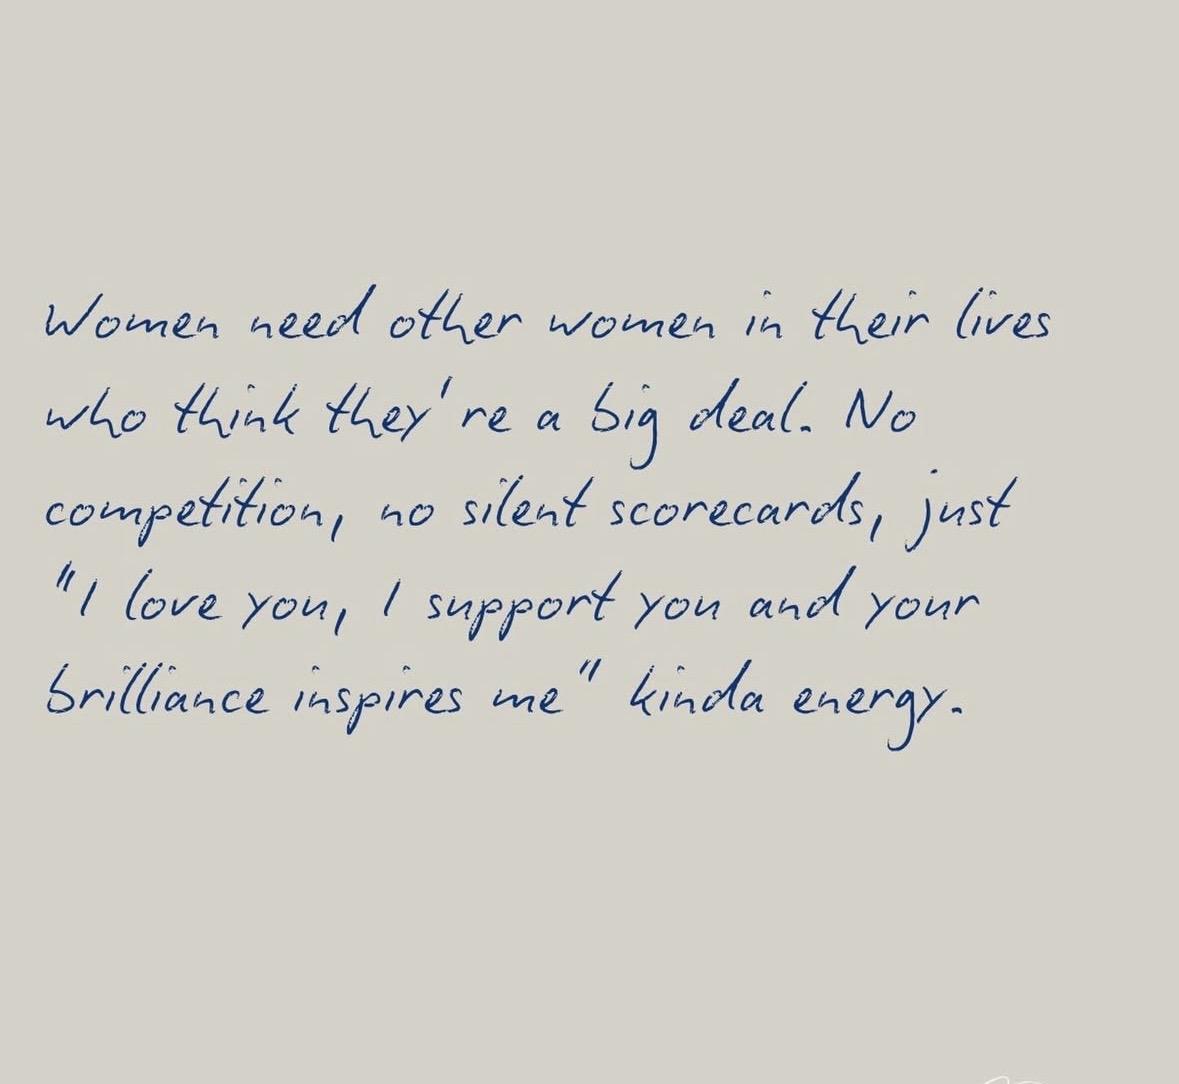 Women need other women in their lives
who think they're a big deal. No
competition, no silent scorecards, just
"I love you, I support you and your
brilliance inspires me" kinda energy.